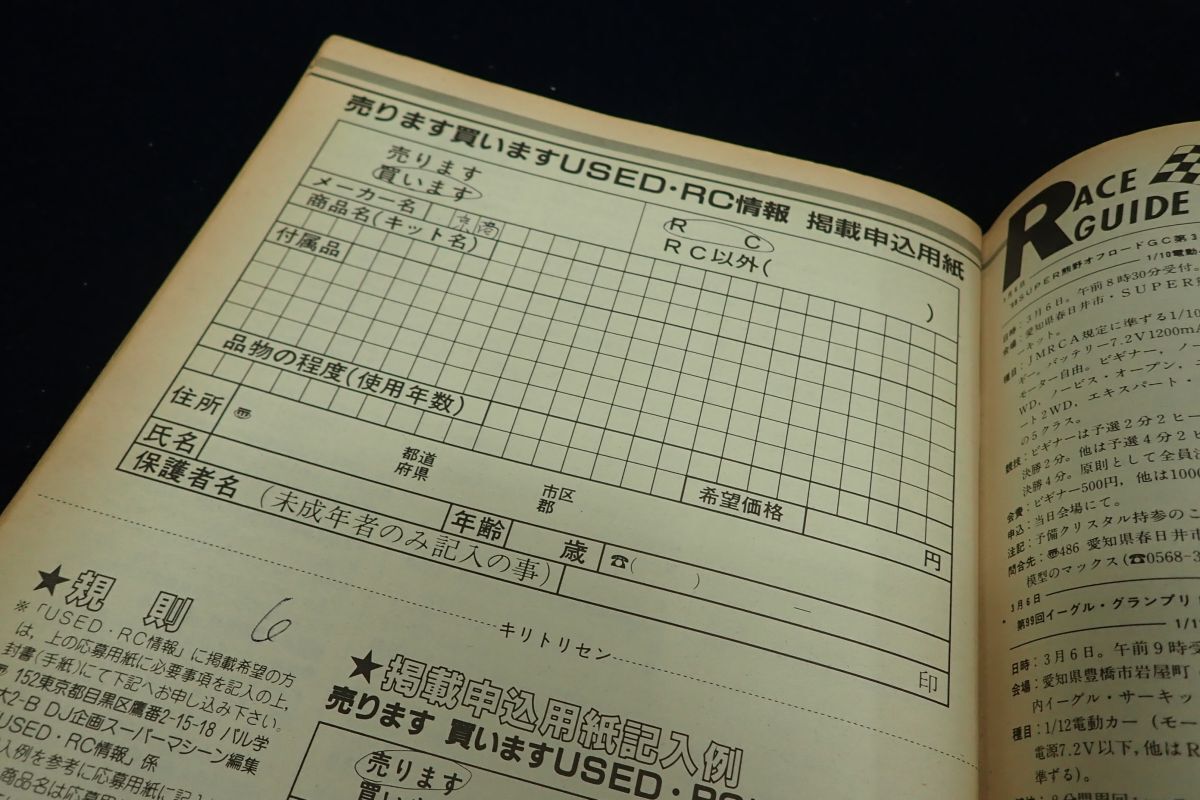 売ります買いますUSED・RC情報 掲載申込用紙
売ります
買います
R C
RC以外( )
メーカー名 京商
商品名(キット名)
付属品
品物の程度(使用年数)
希望価格
円
住所 〒
都道
府県
市区
郡
氏名
年齢 歳 ☎( ) －
保護者名 (未成年者のみ記入の事)
印
キリトリセン
★規則 6
※「USED・RC情報」に掲載希望の方
は，上の応募用紙に必要事項を記入の上，
封書(手紙)にて下記へお申し込み下さい。
152東京都目黒区鷹番2-15-18 パル学
大2-B DJ企画スーパーマシーン編集
USED・RC情報」係
入例を参考に応募用紙に記入
商品名は応募用
★掲載申込用紙記入例
売ります 買いますUSED・RC
売ります
買います
RACE
GUIDE
3月6日
'88SUPER熊野オフロードGC第3
1/10電動
日時：3月6日。午前8時30分受付。
会場：愛知県春日井市・SUPER
ーキット。
種目：JMRCA規定に準ずる1/10
ギー，バッテリー7.2V1200mA
モーター自由。ビギナー，ノー
WD，ノービス・オープン，
ート2WD，エキスパート・
の5クラス。
競技：ビギナーは予選2分2ヒー
決勝2分。他は予選4分2ヒ
決勝4分。原則として全員
会費：ビギナー500円，他は100
申込：当日会場にて。
注記：予備クリスタル持参のこ
問合先：〒486 愛知県春日井市
模型のマックス(☎0568-3
3月6日
第99回イーグル・グランプリ
1/1
日時：3月6日。午前9時受
会場：愛知県豊橋市岩屋町
内イーグル・サーキッ
種目：1/12電動カー（モー
電源7.2V以下，他はR
準ずる)。
8分間周回